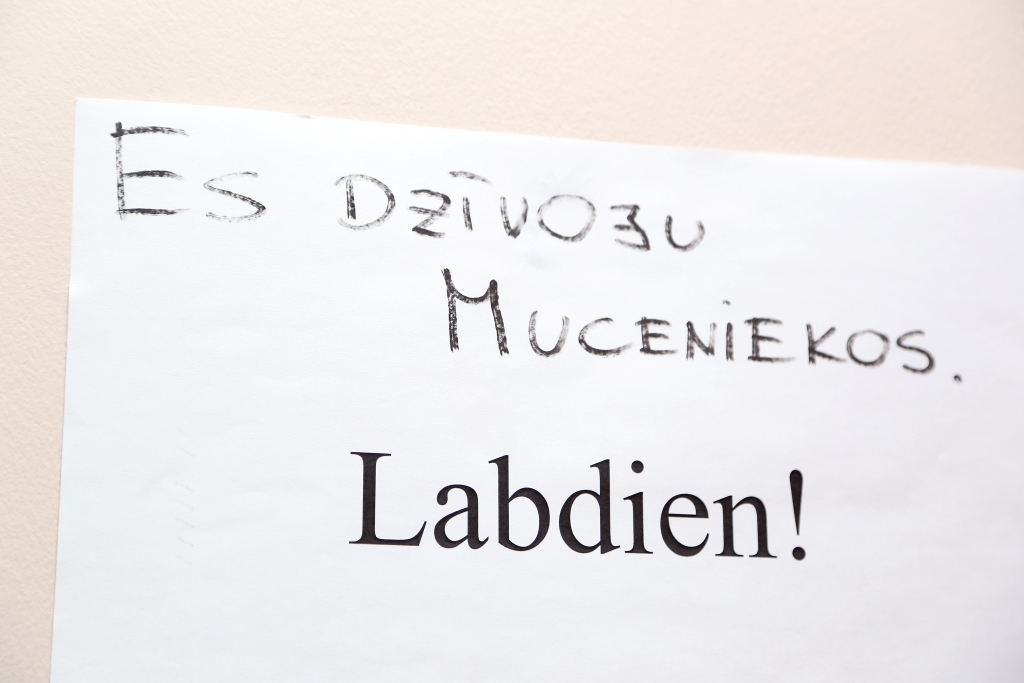 ES DZĪVOJU
MUCENIEKOS.
Labdien!